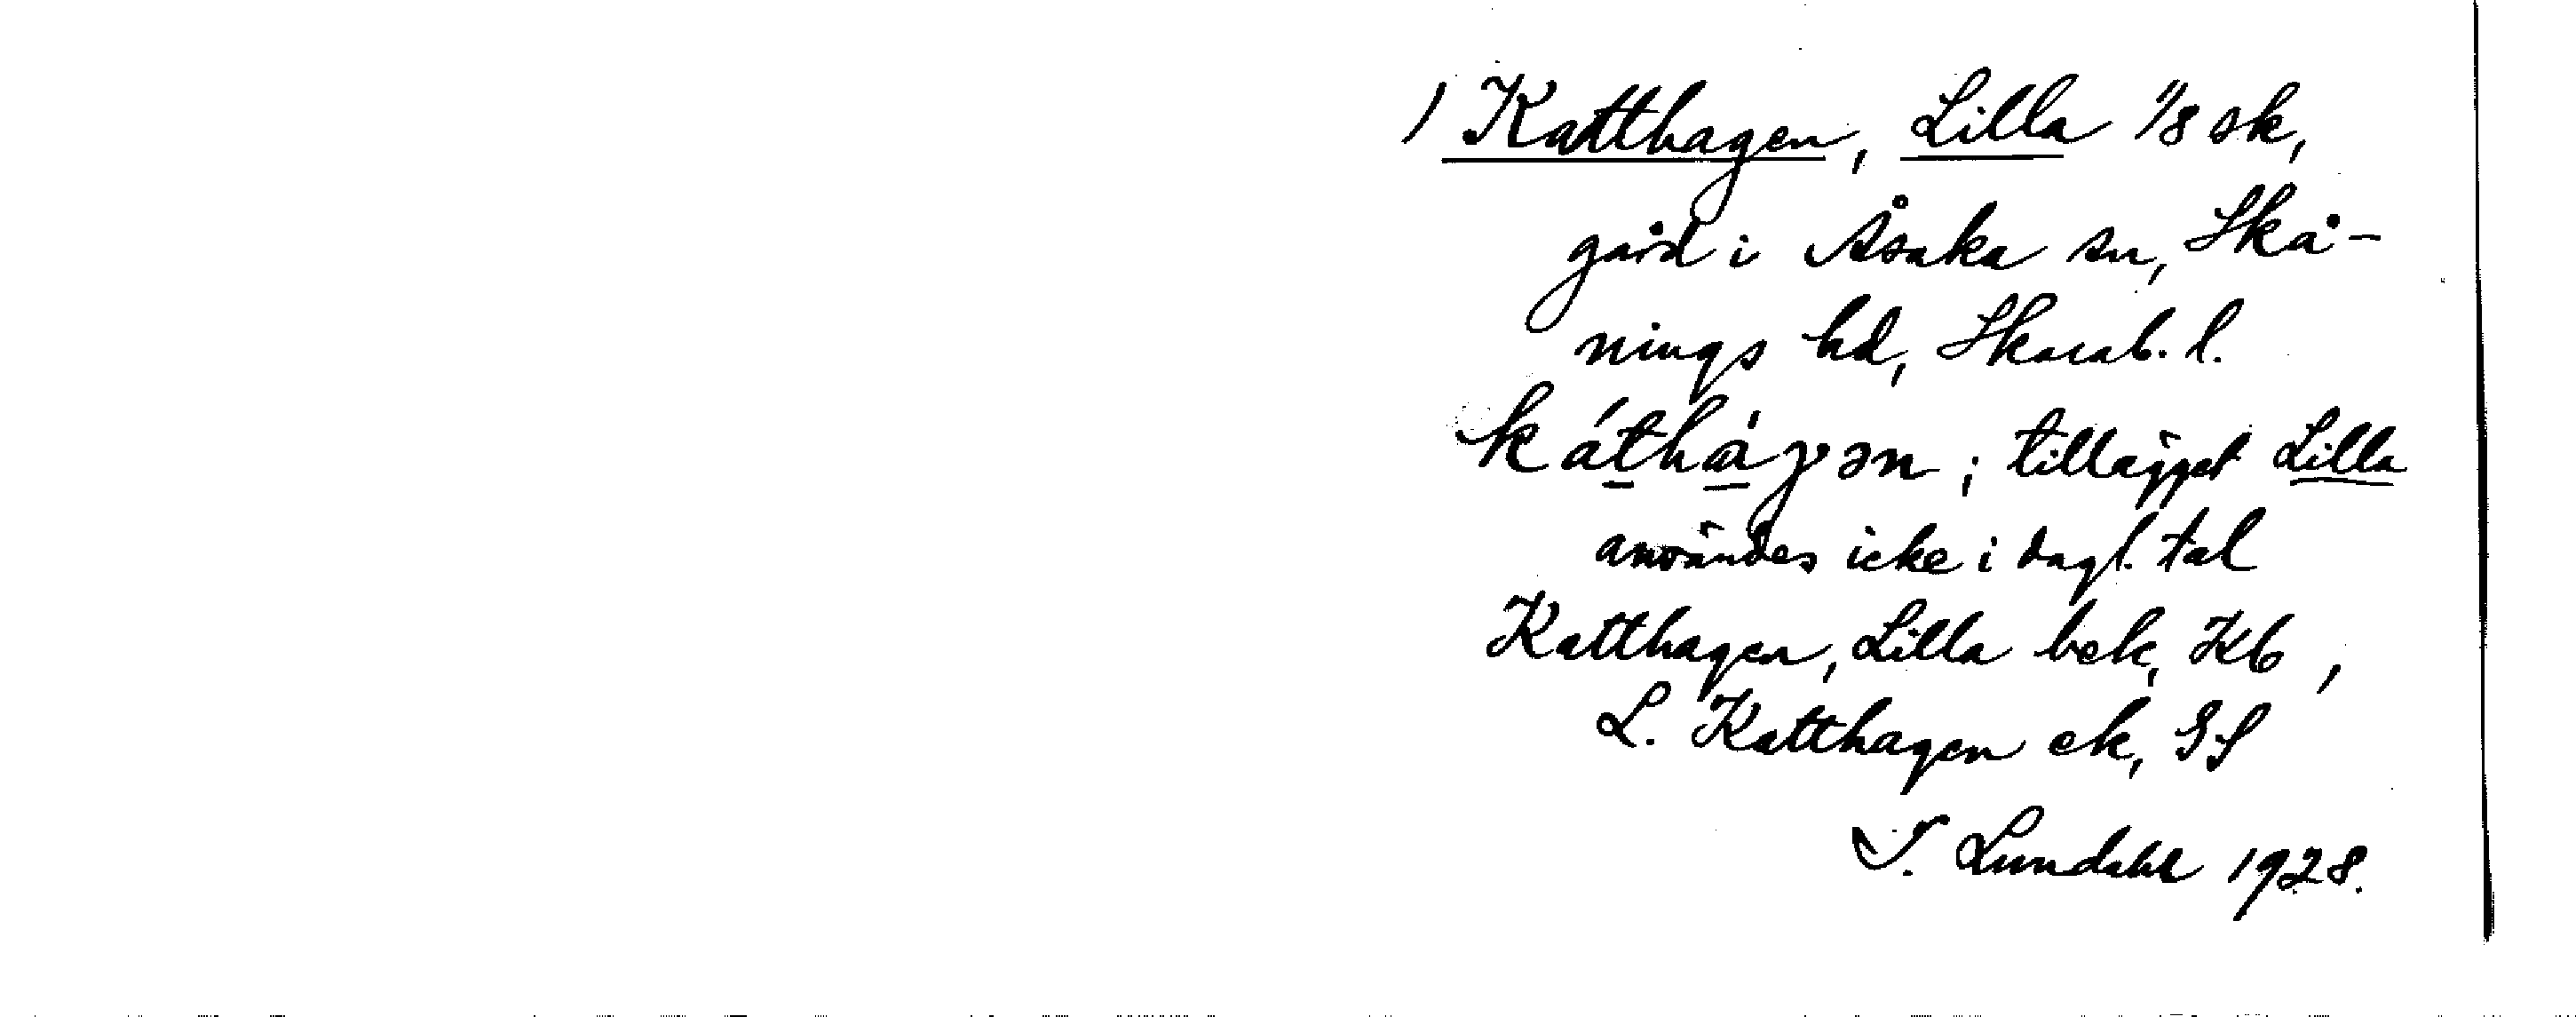 ) Katthagen, Lilla 1/8 sk,
gård i Åsaka sn, Skå-
nings hd, Skarab. l.
káthàγən; tillägget Lilla
användes icke i dagl. tal
Katthagen, Lilla bek, Kb,
L. Katthagen ek, GS
I. Lundahl 1928.